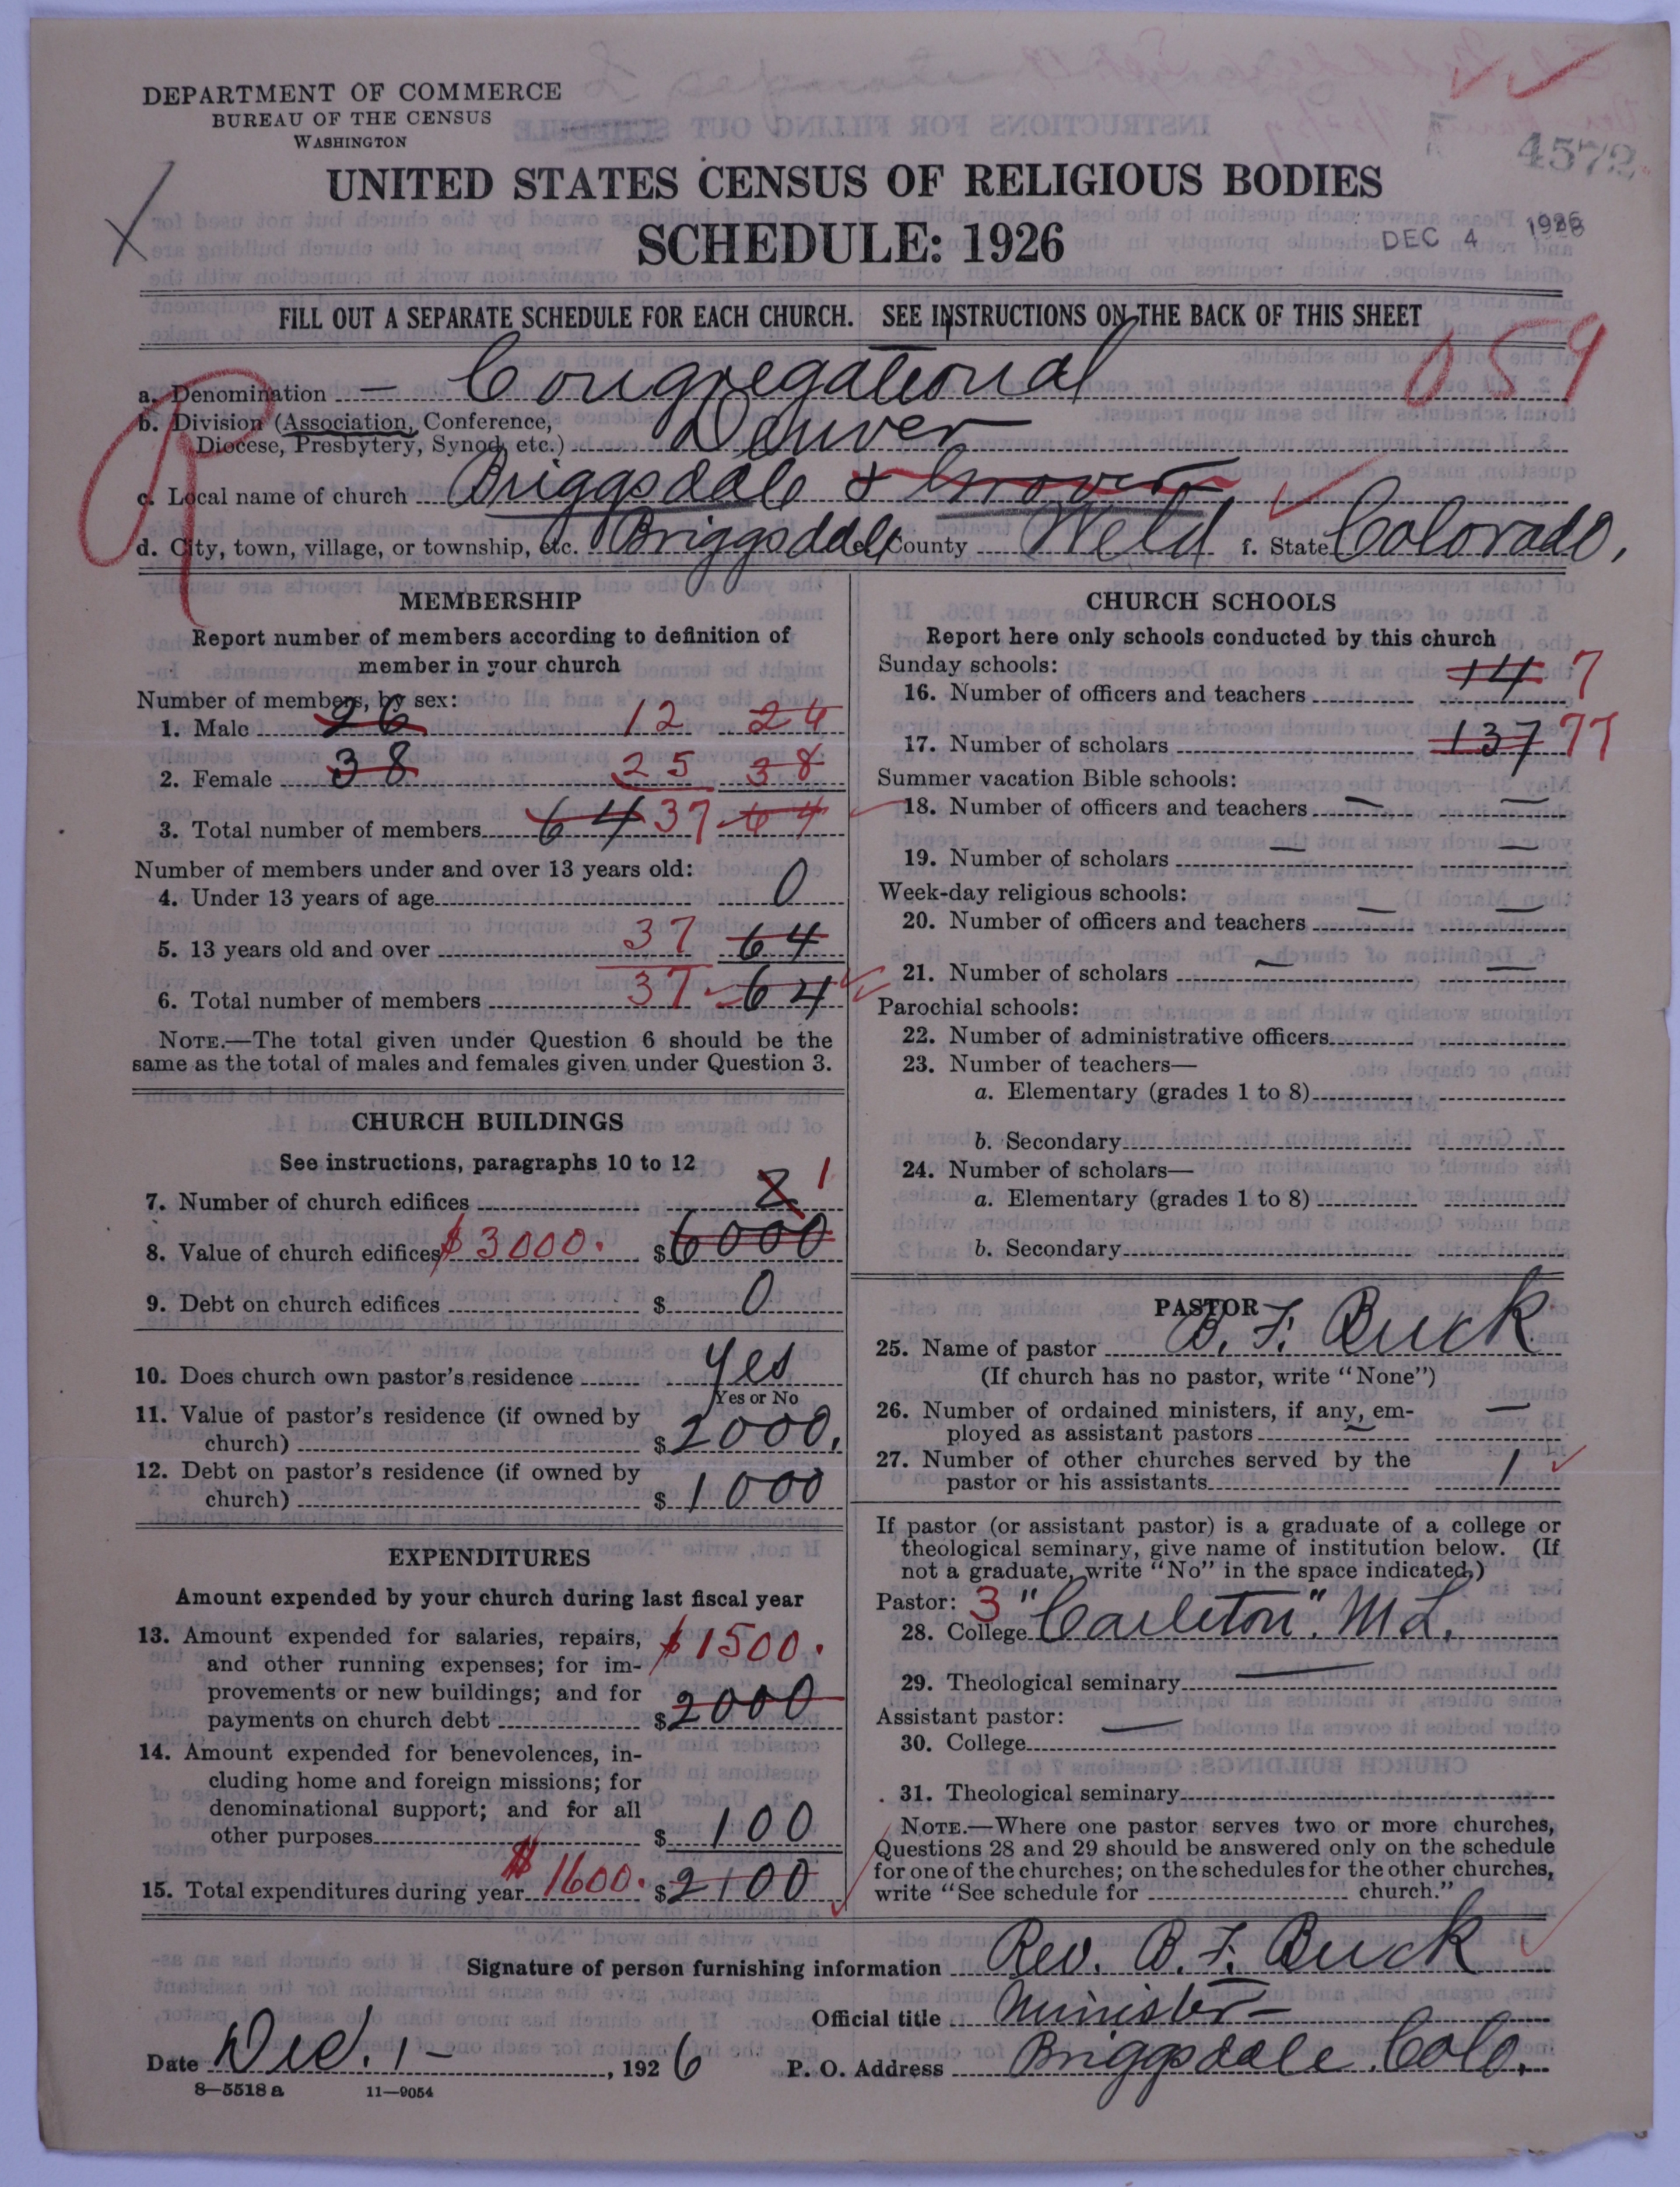 DEPARTMENT OF COMMERCE
BUREAU OF THE CENSUS
WASHINGTON
4572
UNITED STATES CENSUS OF RELIGIOUS BODIES
SCHEDULE: 1926
DEC 4 1926
FILL OUT A SEPARATE SCHEDULE FOR EACH CHURCH. SEE INSTRUCTIONS ON THE BACK OF THIS SHEET
059
a. Denomination — Congregational
b. Division (Association, Conference, Diocese, Presbytery, Synod, etc.) Denver
c. Local name of church Briggsdale & Grover
d. City, town, village, or township, etc. Briggsdale County Weld f. State Colorado,
MEMBERSHIP
Report number of members according to definition of
member in your church
Number of members, by sex:
1. Male 26 12 26
2. Female 38 25 38
3. Total number of members 64 37 64
Number of members under and over 13 years old:
4. Under 13 years of age 0
5. 13 years old and over 37 64
6. Total number of members 37 64
NOTE.—The total given under Question 6 should be the
same as the total of males and females given under Question 3.
CHURCH BUILDINGS
See instructions, paragraphs 10 to 12
7. Number of church edifices 2 1
8. Value of church edifices $3000. $6000
9. Debt on church edifices $0
10. Does church own pastor's residence yes
Yes or No
11. Value of pastor's residence (if owned by
church) $2000.
12. Debt on pastor's residence (if owned by
church) $1000
EXPENDITURES
Amount expended by your church during last fiscal year
13. Amount expended for salaries, repairs,
and other running expenses; for im-
provements or new buildings; and for
payments on church debt $1500. $2000
14. Amount expended for benevolences, in-
cluding home and foreign missions; for
denominational support; and for all
other purposes $100
15. Total expenditures during year $1600. $2100
CHURCH SCHOOLS
Report here only schools conducted by this church
Sunday schools:
16. Number of officers and teachers 14 7
17. Number of scholars 137 77
Summer vacation Bible schools:
18. Number of officers and teachers — —
19. Number of scholars — —
Week-day religious schools:
20. Number of officers and teachers — —
21. Number of scholars — —
Parochial schools:
22. Number of administrative officers
23. Number of teachers—
a. Elementary (grades 1 to 8)
b. Secondary
24. Number of scholars—
a. Elementary (grades 1 to 8)
b. Secondary
PASTOR
25. Name of pastor B. F. Buck
(If church has no pastor, write "None")
26. Number of ordained ministers, if any, em-
ployed as assistant pastors — —
27. Number of other churches served by the
pastor or his assistants 1
If pastor (or assistant pastor) is a graduate of a college or
theological seminary, give name of institution below. (If
not a graduate, write "No" in the space indicated.)
Pastor: 3
28. College "Carleton". M L.
29. Theological seminary —
Assistant pastor: —
30. College
31. Theological seminary
NOTE.—Where one pastor serves two or more churches,
Questions 28 and 29 should be answered only on the schedule
for one of the churches; on the schedules for the other churches,
write "See schedule for church."
Signature of person furnishing information Rev. B. F. Buck
Official title Minister
Date Dec. 1 -, 1926 P. O. Address Briggsdale. Colo.
8—5518 a 11—9054